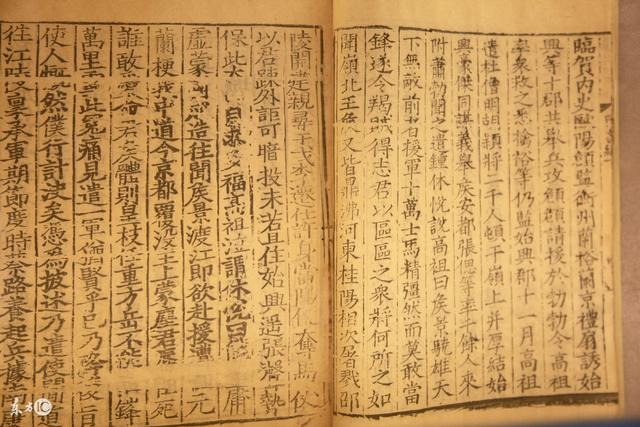 臨賀內史歐陽頠監衡州蘭裕蘭京禮扇誘始
興等十郡共舉兵攻頠頠請援於勃勃令高祖
率衆救之悉擒裕等仍監始興郡十一月高祖
遣杜僧明胡穎將二千人頓于嶺上并厚結始
興豪傑同謀義舉侯安都張偲等率千餘人來
附蕭勃聞之遣鍾休悅說高祖曰侯景驍雄天
下無敵前者援軍十萬士馬精彊然而莫敢當
鋒遂令羯賊得志君以區區之衆將何所之如
聞嶺北王侯又皆鼎沸河東桂陽相次屠戮邵
陵開建親尋干戈李遷仕許身當陽便奪馬仗
以君疎外詎可暗投未若且住始興遙張聲勢
保此太自求多福高祖泣謂休悅曰庸
虛蒙國造往聞侯景渡江即欲赴援遭元
蘭梗我中道今京都覆沒主上蒙塵君辱死
誰敢愛命君侯體則皇枝任重方岳不能鋒
萬里雪此冤痛見遣一軍猶賢乎已乃降後旨
使人慨然僕行計決矣憑爲披述乃遣使間道
往江陵稟承軍期節度時蔡路養起兵據南康
东方IC